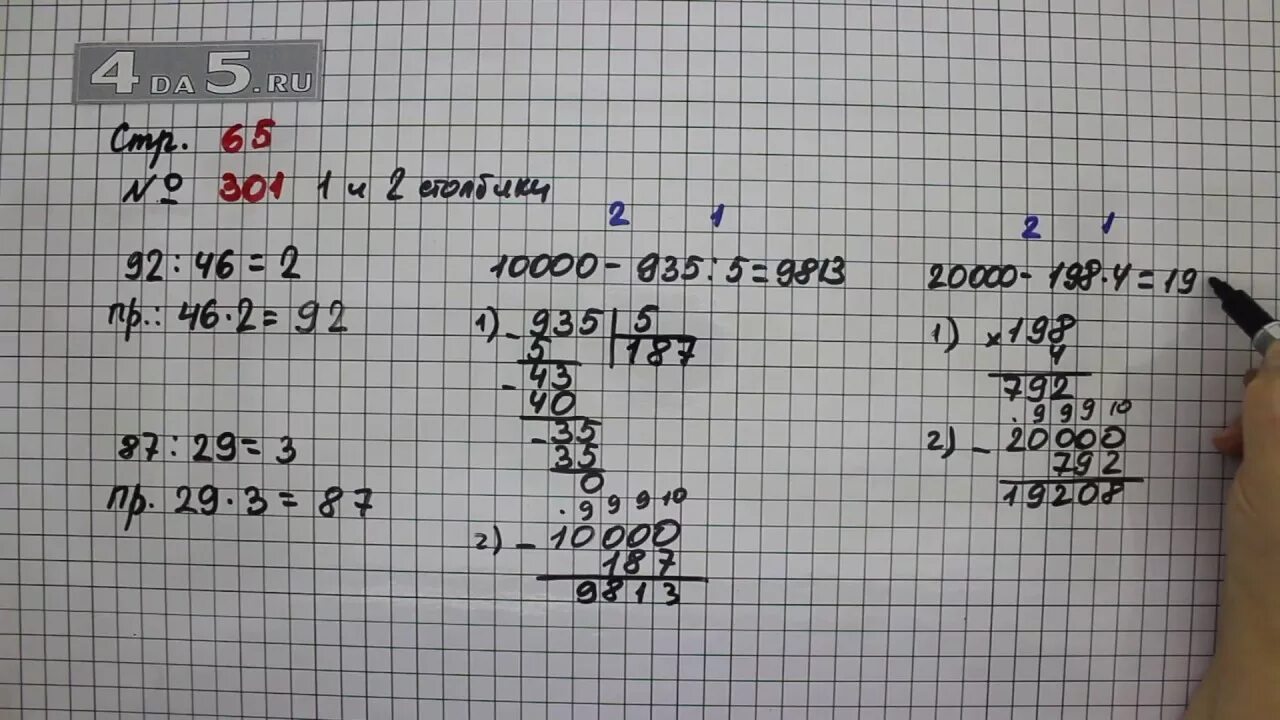 4DA5.RU
Стр. 65
№ 301 1 и 2 столбики
92 : 46 = 2
пр.: 46 · 2 = 92
87 : 29 = 3
пр. 29 · 3 = 87
2 1
10000 - 935 : 5 = 9813
1) - 935 | 5
5 | 187
- 43
40
- 35
35
0
. 9 9 9 10
2) - 10000
187
9813
2 1
20000 - 198 · 4 = 19
1) × 198
4
792
. 9 9 9 10
2) - 20000
792
19208